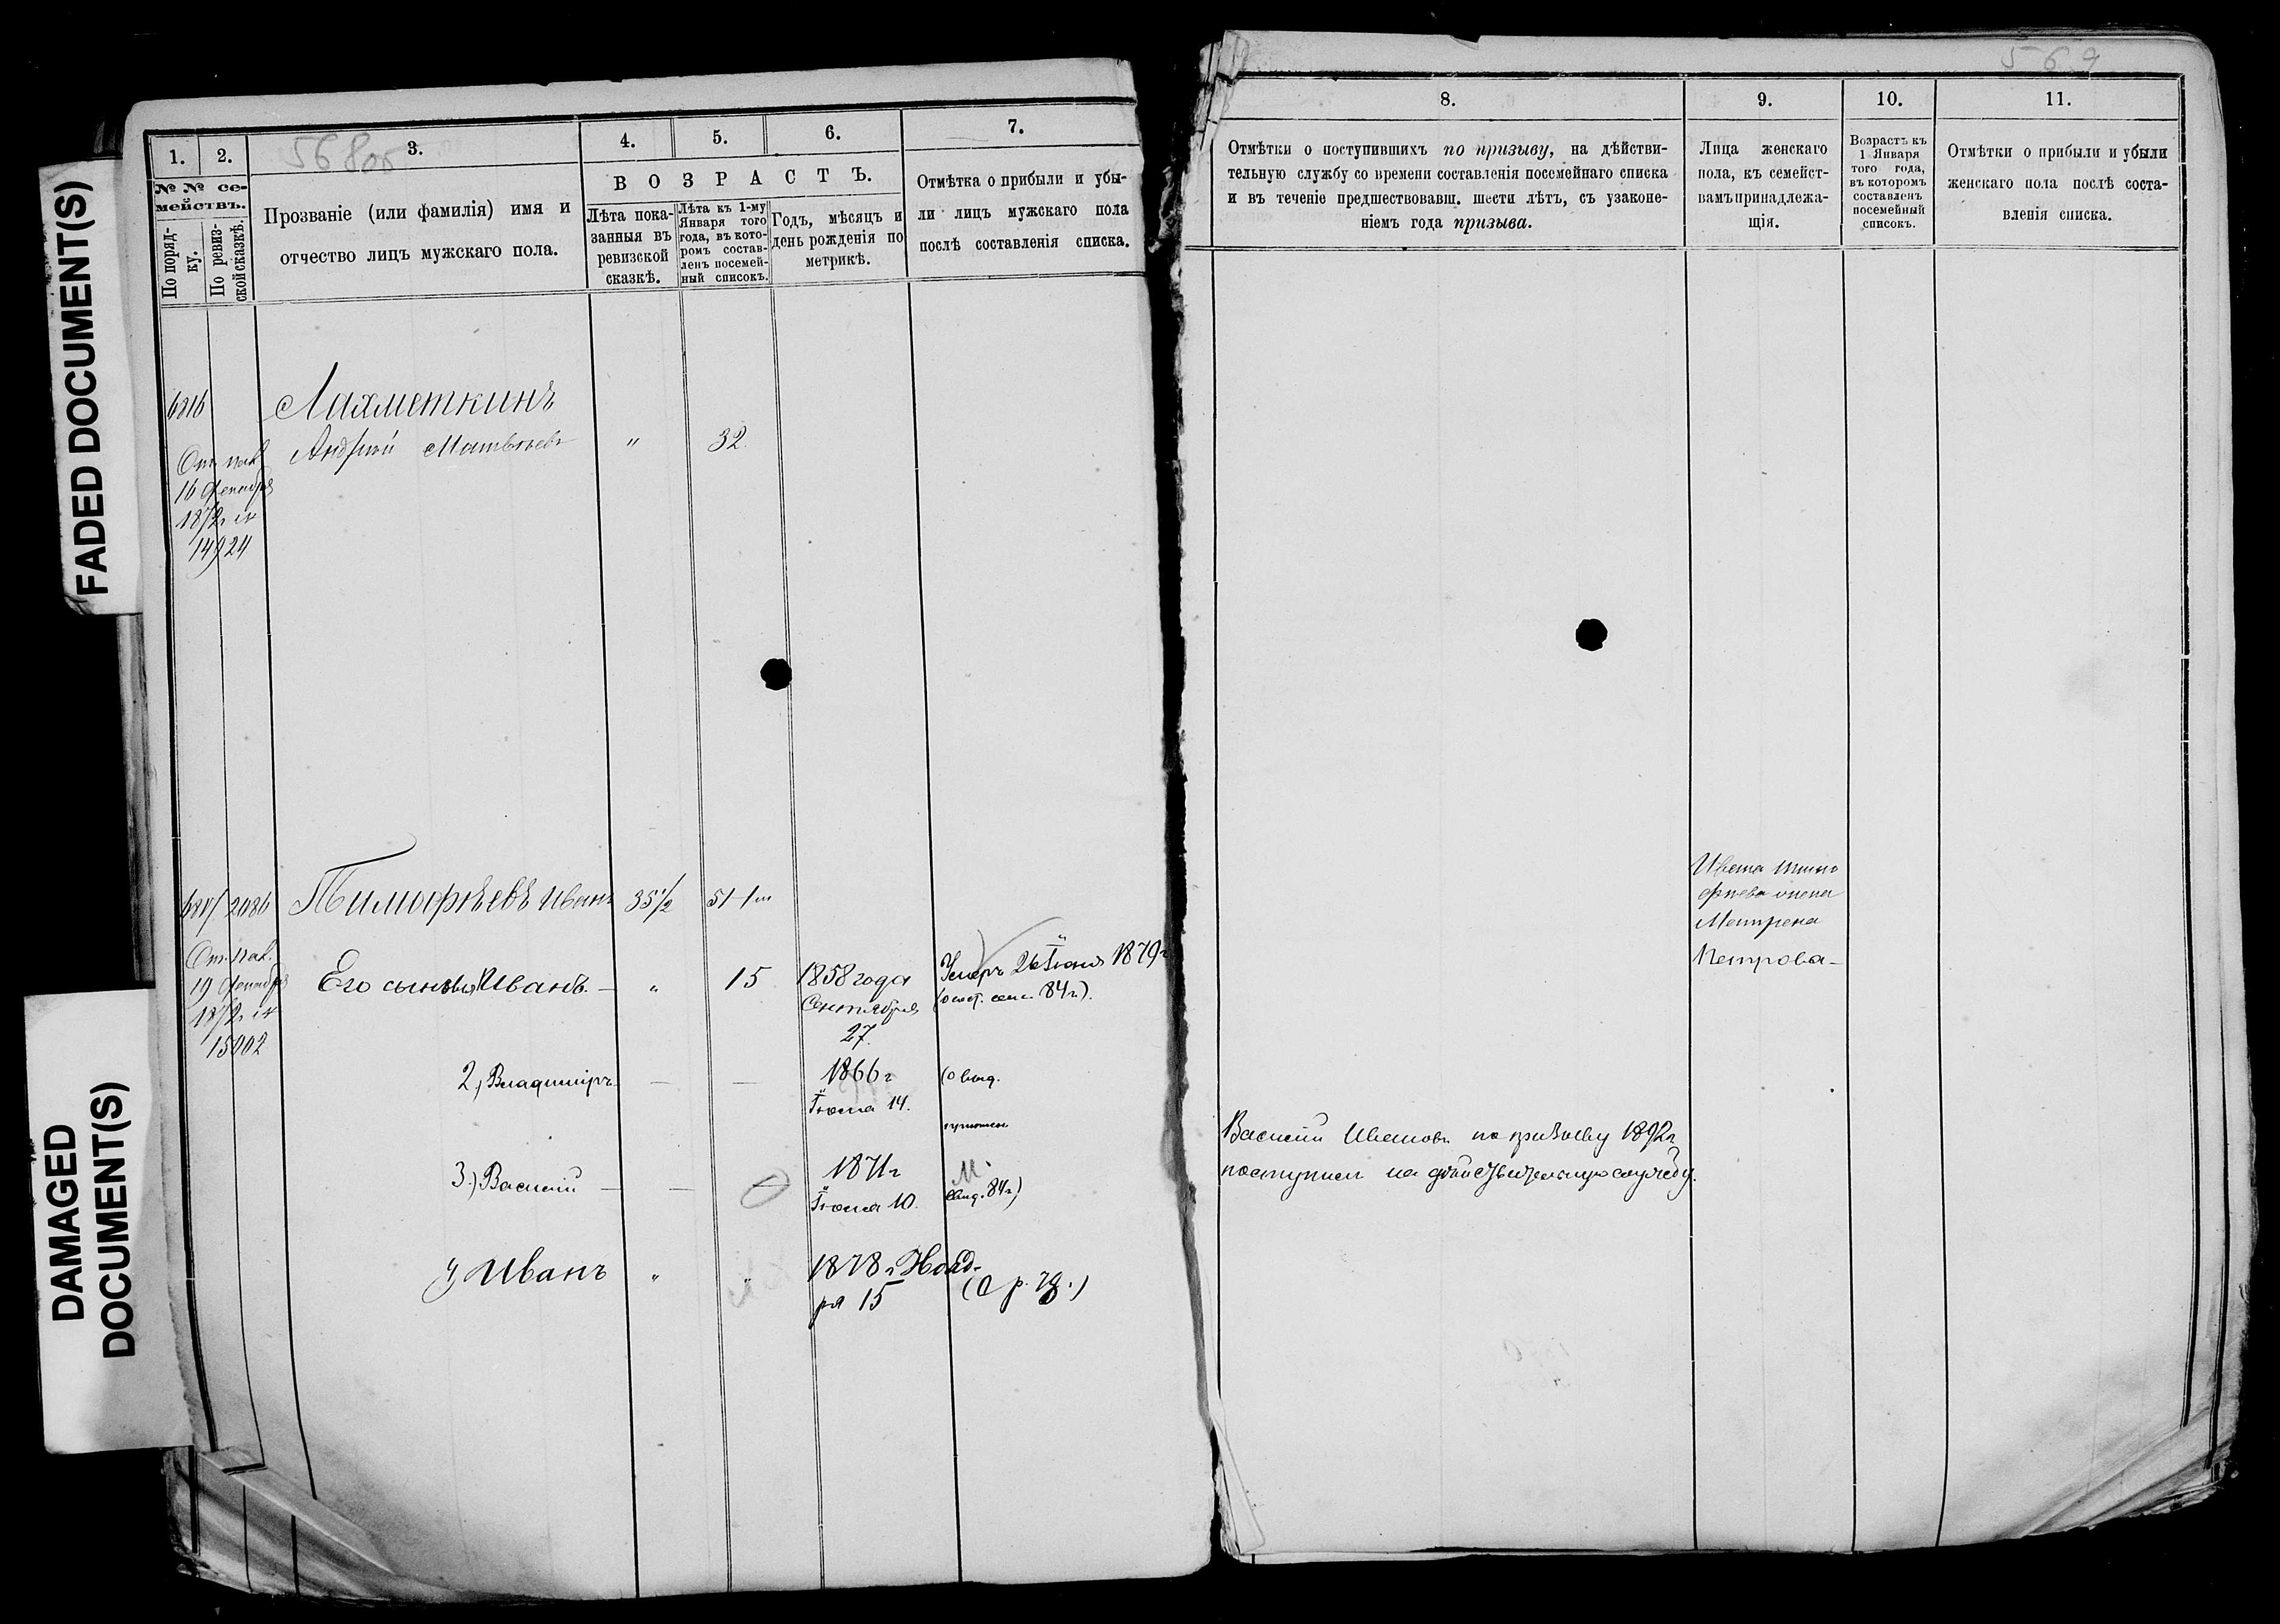 FADED DOCUMENT(S)
DAMAGED
DOCUMENT(S)
568об
1.
2.
3.
4.
5.
6.
7.
№ № се-
мействъ.
По поряд-
ку.
По ревиз-
ской сказкѣ.
Прозваніе (или фамилія) имя и
отчество лицъ мужскаго пола.
В О З Р А С Т Ъ.
Лѣта пока-
занныя въ
ревизской
сказкѣ.
Лѣта къ 1-му
Января того
года, въ кото-
ромъ состав-
ленъ посемей-
ный списокъ.
Годъ, мѣсяцъ и
день рожденія по
метрикѣ.
Отмѣтка о прибыли и убы-
ли лицъ мужскаго пола
послѣ составленія списка.
6816
Лахметкинъ
Андрей Матвѣевъ " 32
От. пав.
16 Декабря
1872 г. №
14924
6817 2086 Тимофѣевъ Иванъ 35½ 51
От. пав.
19 Декабря
1872 г. №
15002
Его сыновья Иванъ — " 15 1858 года
Сентября
27.
Умеръ 26 Іюня 1879 г
84 г).
2, Владиміръ — — 1866 г
Іюля 14.
3.) Василій — — 1871 г
Іюля 10.
М.
84 г)
4, Иванъ " " 1878 г. Нояб-
ря 15
569
8.
9.
10.
11.
Отмѣтки о поступившихъ по призыву, на дѣйстви-
тельную службу со времени составленія посемейнаго списка
и въ теченіе предшествовавш. шести лѣтъ, съ узаконе-
ніемъ года призыва.
Лица женскаго
пола, къ семейст-
вамъ принадлежа-
щія.
Возрастъ къ
1 Января
того года,
въ которомъ
составленъ
посемейный
списокъ.
Отмѣтки о прибыли и убыли
женскаго пола послѣ соста-
вленія списка.
Ивана Тимо
фѣева жена
Матрена
Петрова —
Василій Ивановъ по призыву 1892 г.
поступилъ на дѣйствительную службу.